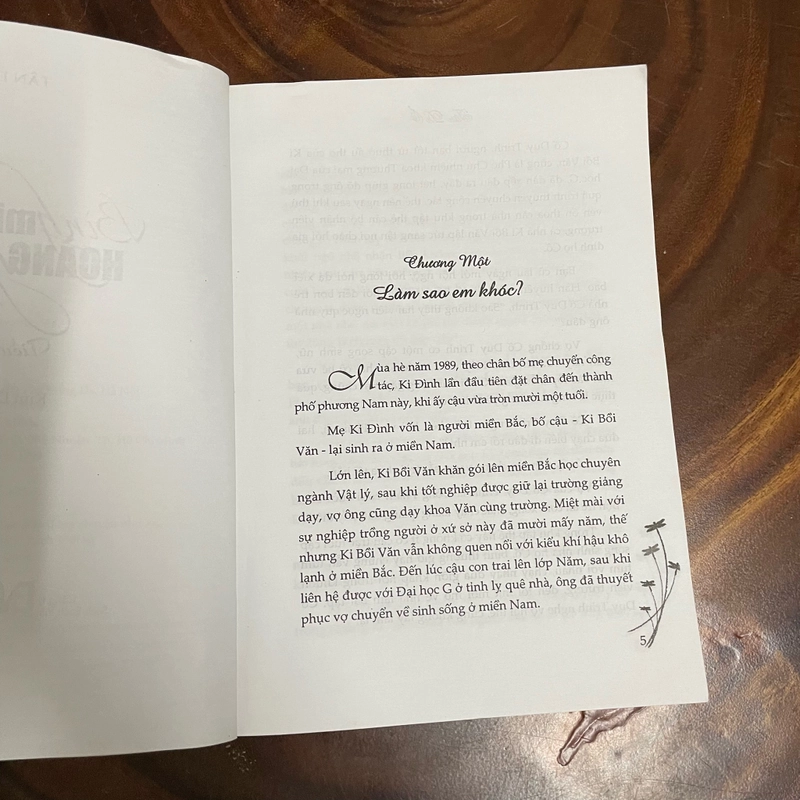 Chương Một
Làm sao em khóc?
Mùa hè năm 1989, theo chân bố mẹ chuyển công
tác, Ki Đình lần đầu tiên đặt chân đến thành
phố phương Nam này, khi ấy cậu vừa tròn mười một tuổi.
Mẹ Ki Đình vốn là người miền Bắc, bố cậu - Ki Bồi
Văn - lại sinh ra ở miền Nam.
Lớn lên, Ki Bồi Văn khăn gói lên miền Bắc học chuyên
ngành Vật lý, sau khi tốt nghiệp được giữ lại trường giảng
dạy, vợ ông cũng dạy khoa Văn cùng trường. Miệt mài với
sự nghiệp trồng người ở xứ sở này đã mười mấy năm, thế
nhưng Ki Bồi Văn vẫn không quen nổi với kiểu khí hậu khô
lạnh ở miền Bắc. Đến lúc cậu con trai lên lớp Năm, sau khi
liên hệ được với Đại học G ở tỉnh lỵ quê nhà, ông đã thuyết
phục vợ chuyển về sinh sống ở miền Nam.
5